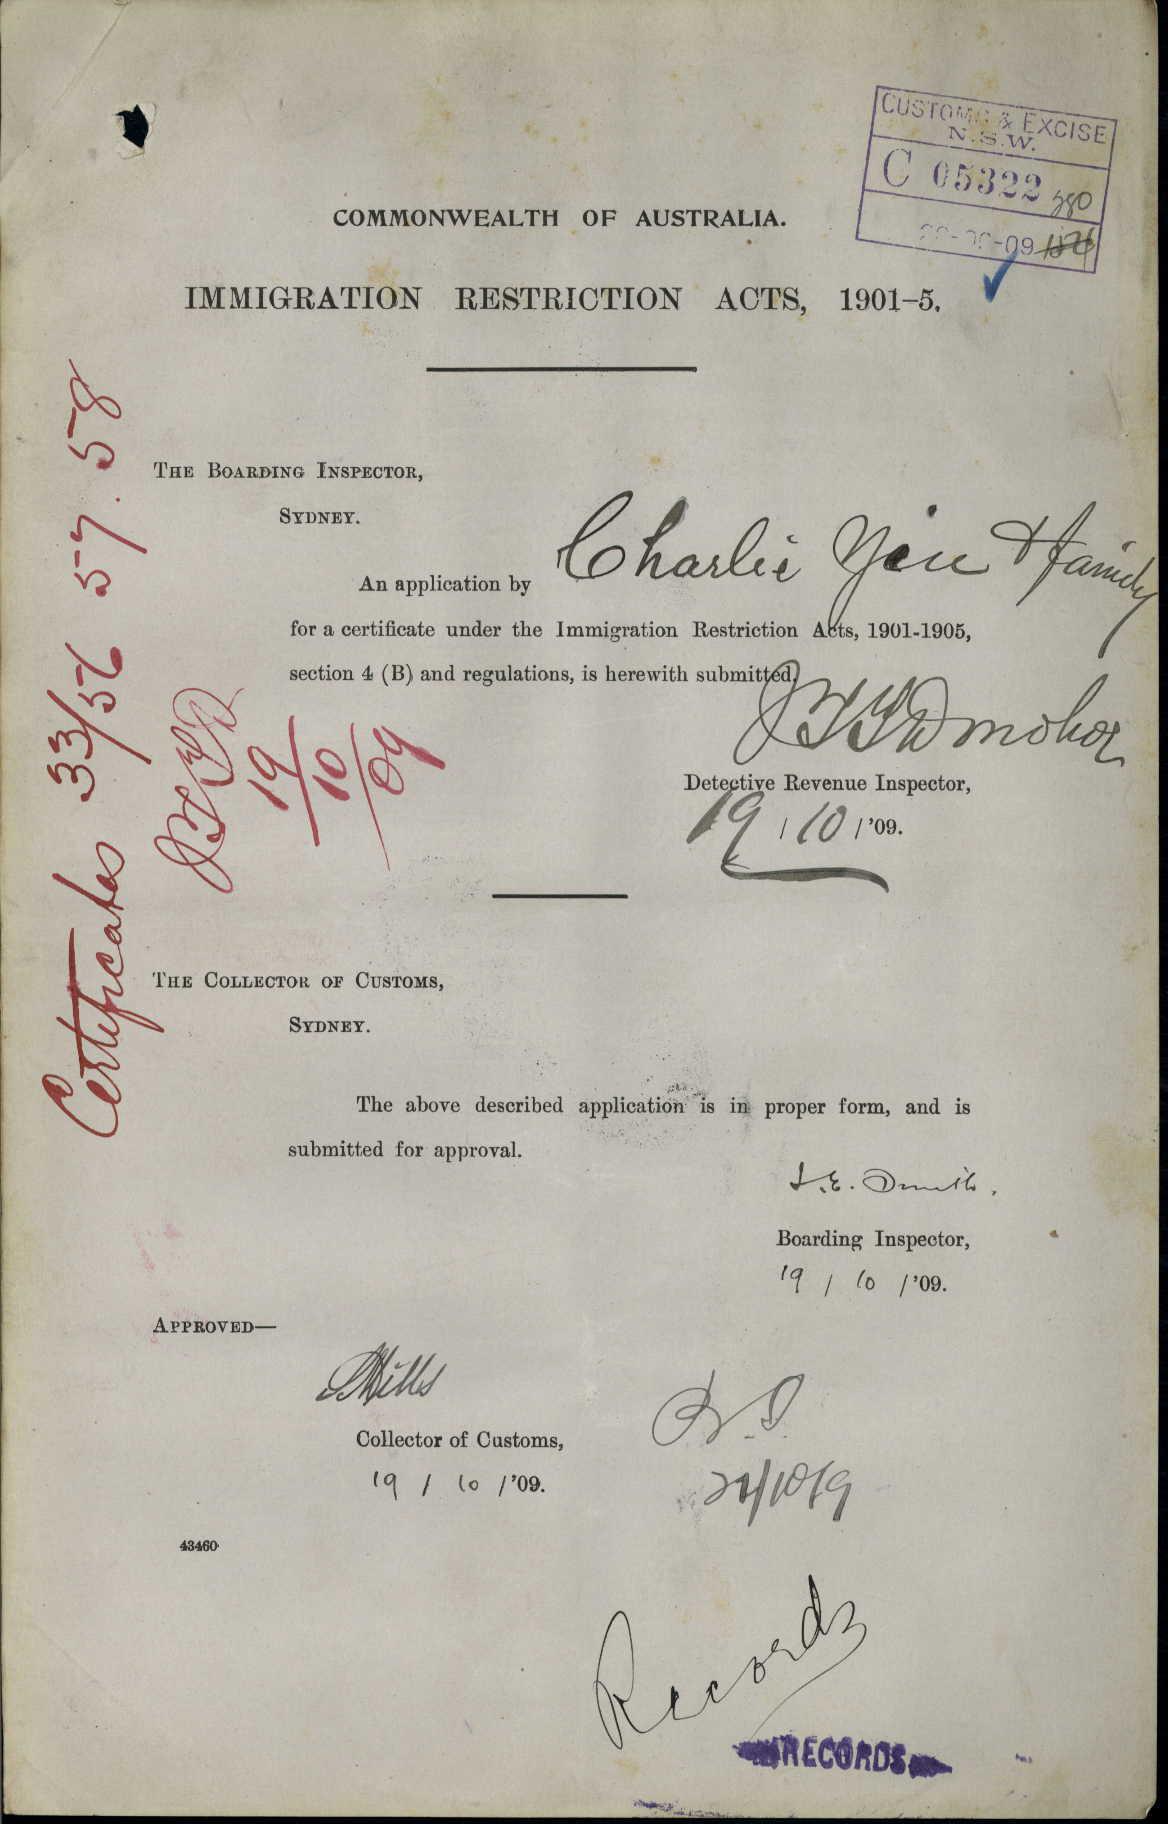 CUSTOMS & EXCISE
N.S.W.
C 05322 380
-09
COMMONWEALTH OF AUSTRALIA.
IMMIGRATION RESTRICTION ACTS, 1901-5.
THE BOARDING INSPECTOR,
SYDNEY.
An application by Charlie Yee & family
for a certificate under the Immigration Restriction Acts, 1901-1905,
section 4 (B) and regulations, is herewith submitted.
JTTDonohoe
Detective Revenue Inspector,
19 / 10 /'09.
Certificates 33/56 57. 58
19/10/09
THE COLLECTOR OF CUSTOMS,
SYDNEY.
The above described application is in proper form, and is
submitted for approval.
Boarding Inspector,
19 / 10 /'09.
APPROVED—
Mills
Collector of Customs,
19 / 10 /'09.
43460
Records
RECORDS